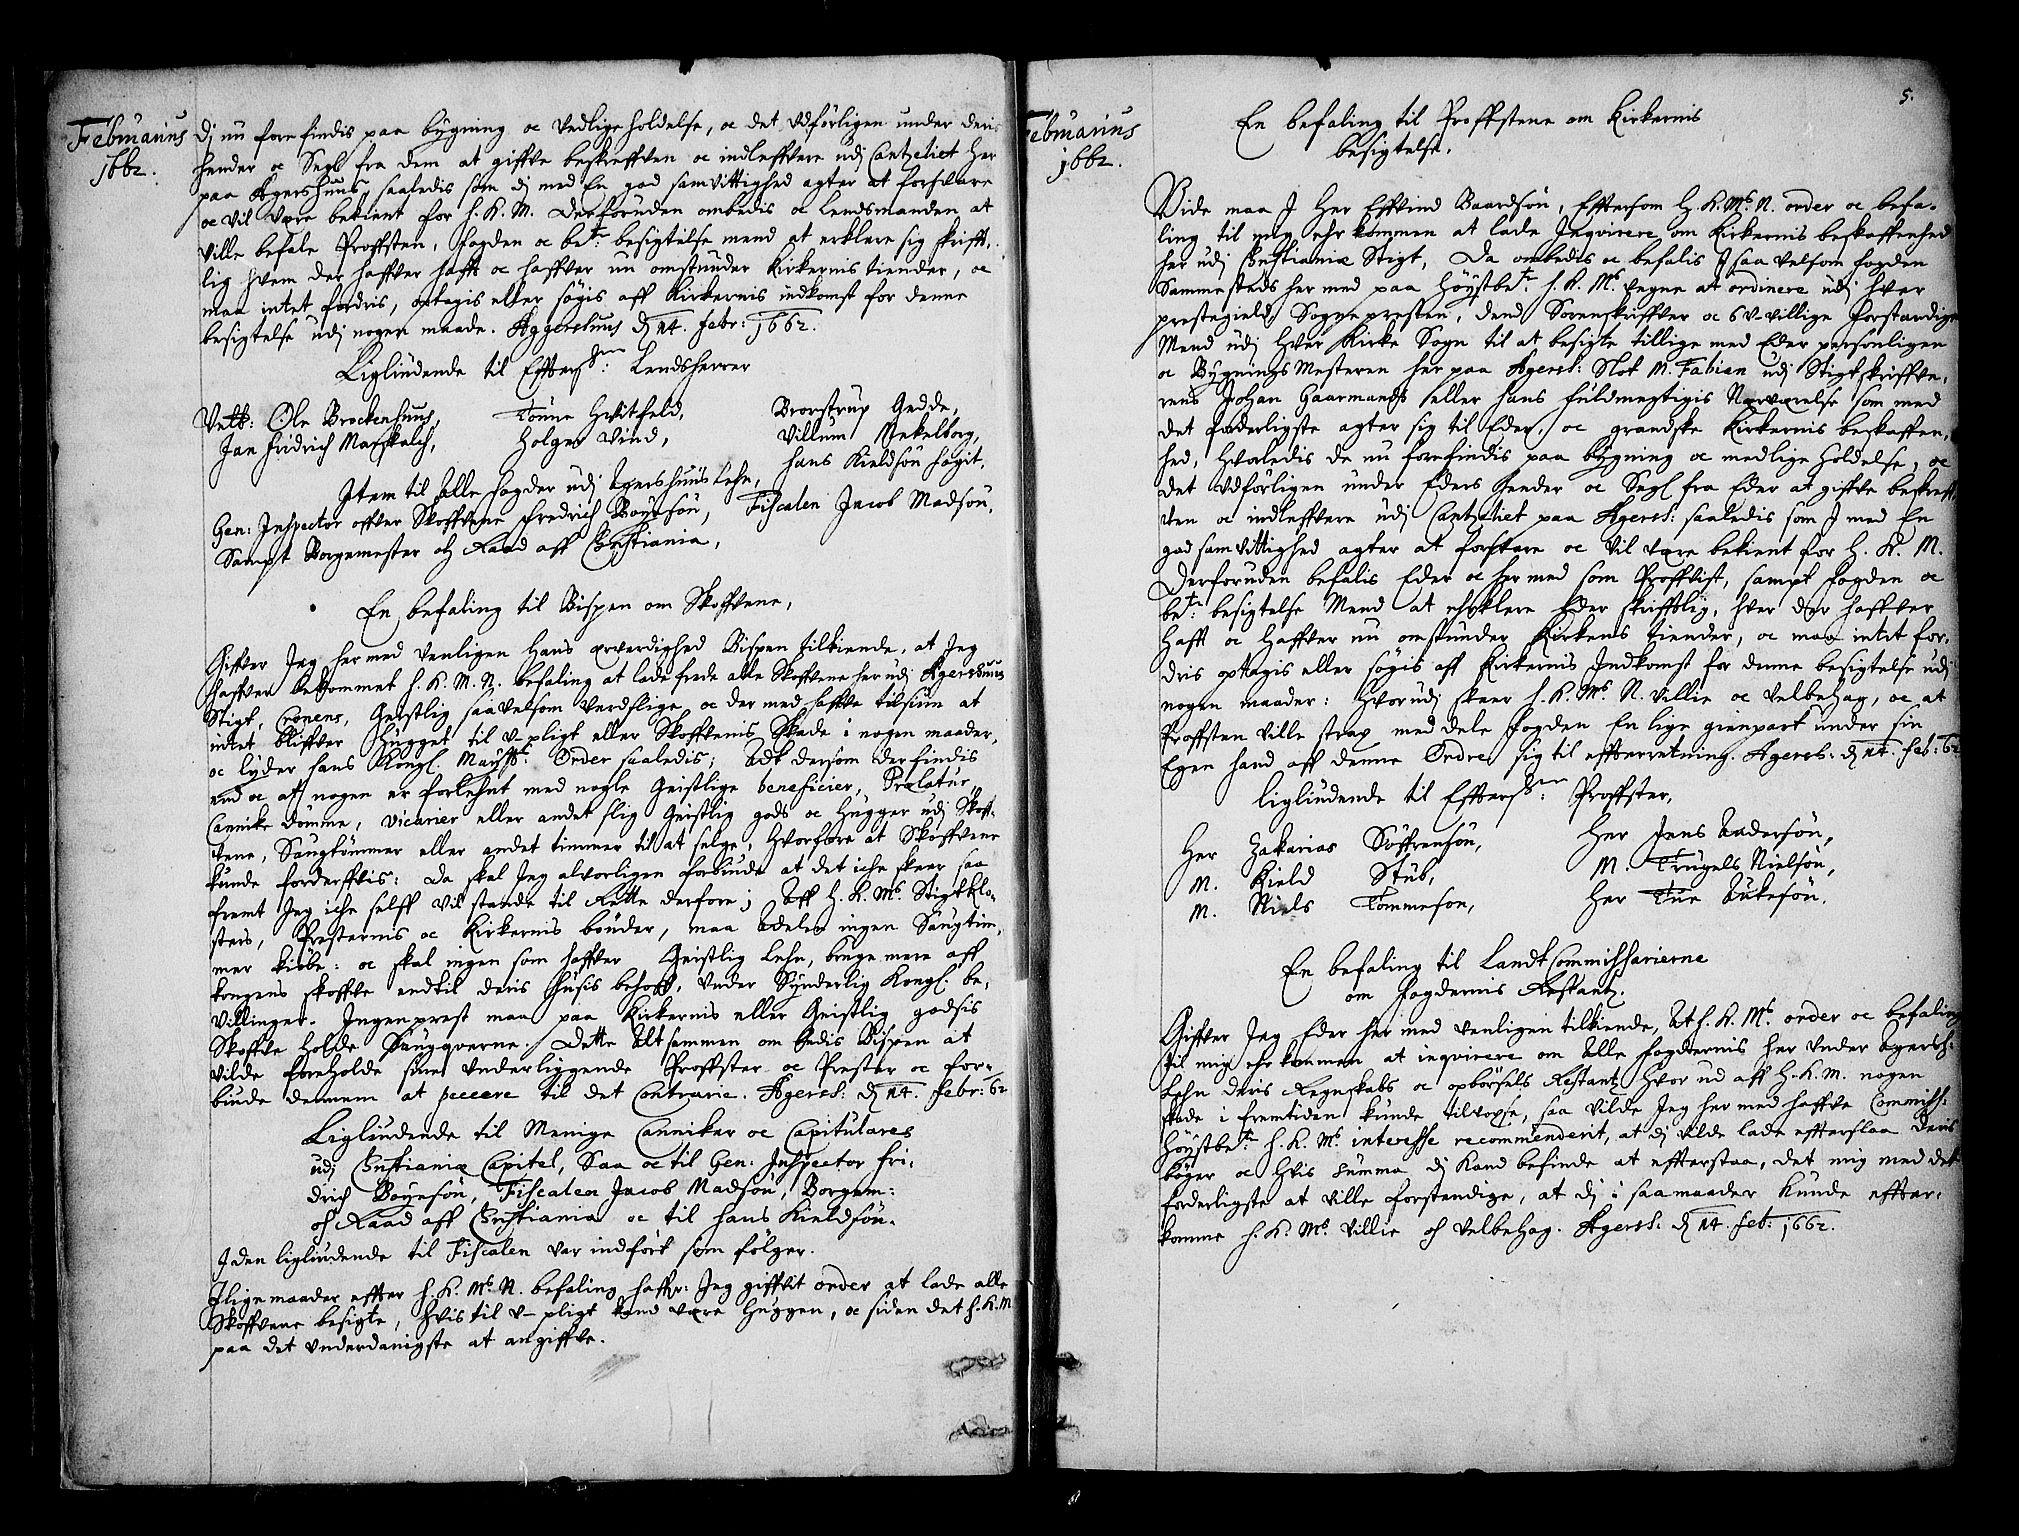 Februarius
1662.
di nu forefindis paa bygning oc vedligeholdelse, oc det udförligen under deris
hender oc Segl fra dem at giffve beskreffven oc indleffvere udj Cantzeliet her
paa Agershuus, saaledis som di med En god samvittighed agter at forsvare
oc vil være bekient for H. K. M. Derforuden ombedis oc Lendsmanden at
ville befale Proffsten, fogden oc bete: besigtelse mend at erklere sig skrifft-
lig hvem der haffver hafft oc haffver nu omstunder Kirkernis tiender, oc
maa intet fordris, optagis eller søgis aff Kirkernis indkomst for denne
besigtelse udj nogen maade. Aggershuus d 14. febr: 1662.
Liglüdende til Effters: Lendsherrer
Velb: Ole Brockenhuus, Tönne Hvitfeld, Brorstrup Gedde,
Jan Fridrich Marskalch, Holger Vind, Villum Mekelborg,
Hans Kieldsön fogit.
Item til Alle fogder udj Agershuus Lehn,
Gen: Inspector offver Skoffvene Fredrich Boyesön, Fiscalen Jacob Madsön,
Sampt Borgemester och Raad aff Christiania,
En befaling til Bispen om Skoffvene,
Giffver Jeg hermed venligen Hans ærverdighed Bispen tilkiende, at Jeg
haffver bekommet H. K. M. N. befaling at lade frede alle Skoffvene her udj Agershuus
Stigt, Cronens, Geistlig saavelsom verdslige, oc der med haffve tilsiun at
intet bliffver Hugget til V-pligt eller Skoffvenis Skade i nogen maader,
oc lyder hans Kongl. Maytts: Order saaledis; Adt dersom der findis
end oc at nogen er forlehnt med nogle Geistlige beneficier, Prælatur,
Cannike dömme, vicarier eller andet slig Geistlig gods oc Hugger udj Skoff-
vene, Saugtömmer eller andet timmer til at selge, Hvorfore at Skoffvene
kunde forderffvis: Da skal Jeg alvorligen forbiude at det iche skeer saa
fremt Jeg iche selff vil stande til Rette derfore; Aff H. K. Ms. Stigt Klo-
sters, Presternis oc Kirkernis bönder, maa Adelen ingen Saugtim-
mer kiöbe: oc skal ingen som haffver Geistlig Lehn, bruge mere aff
kongens skoffve endtil deris Husis behoff, under Synderlig Kongl. be-
villinger. Ingen prest maa paa Kirkernis eller Geistlig godsis
Skoffve holde Saugqverne. Dette Alt sammen ombedis Bispen at
vilde foreholde sine underliggende Proffster oc Prester oc for-
biude dennem at peccere til det Contrarie. Agersh: d 14. Febr: 62
Liglüdende til Menige Canniker oc Capitulares
udj Christianiæ Capitel, Saa oc til Gen: Inspector Fri-
drich Boyesön, Fiscalen Jacob Madsön, Borgem:
oc Raad aff Christiania oc til Hans Kieldsön.
I den liglüdende til Fiscalen var indfört som fölger.
I lige maader effter H. K. Ms. N. befaling haffr: Jeg giffvit order at lade alle
Skoffvene besigte, Hvis til V-pligt kand være Huggen, oc siden det H. K. M
paa det underdanigste at angiffve.
5.
Februarius
1662.
En befaling til Proffstene om Kirkernis
besigtelse.
Vide maa I Her Effvind Baardsön, Efftersom H. K. Ms. N. order oc befa-
ling til mig ehrkommen at lade Inqvirere om Kirkernis beskaffenhed
her udj Christianiæ Stigt, Da ombedis oc befalis I saa velsom fogden
Sammesteds hermed paa Höystbete H. K. Ms. vegne at ordinere udj hver
prestegield Sognepresten, Dend Sorenskriffver oc 6 V-villige forstandige
Mend udj Hver Kirke Sogn til at besigte tillige med Eder personligen
oc Bygnings Mesteren her paa Agersh: Slot M. Fabian udj Stigtskriffve-
rens Johan Gaarmands eller hans fuldmegtigis Nærværelse som med
det forderligste agter sig til Eder, oc grandske Kirkernis beskaffen-
hed, Hvaledis de nu forefindis paa bygning oc medlige holdelse, oc
det udförligen under Eders Hender oc Segl fra Eder at giffve beskreff-
ven oc indleffvere udj Cantzeliet paa Agersh: saaledis som I med En
god samvittighed agter at forsvare oc vil være bekient for H. K. M.
Derforuden befalis Eder oc hermed som Proffvist, sampt fogden oc
bete: besigtelse Mend at ehrklere Eder skrifftlig, hver der haffver
Hafft oc Haffver nu omstunder Kirkens tiender, oc maa intet for-
dris optagis eller søgis aff Kirkernis Indkomst for denne besigtelse udj
nogen maader: Hvorudj skeer H. K. Ms. N. villie oc velbehag, oc at
Proffsten ville strax meddele fogden En lige gienpart under sin
Egen hand aff denne Ordre, sig til effterretning. Agersh: d 14. feb: 62
liglüdende til Effters: Proffster,
Her Zakarias Söffrensön, Her Jens Andersön,
M. Kield Stub, M. Trugels Nielsön,
M. Niels Tommeson, Her Tue Aukesön.
En befaling til Landt Commissarierne
om fogdernis Restantz.
Giffver Jeg Eder hermed venligen tilkiende, At H. K. Ms. order oc befaling
til mig ehrkommen at inqvirere om Alle fogdernis her under Agersh:
Lehn deris Regnskabs oc opbörsels Restantz Hvor ud aff H. K. M. nogen
skade i fremtiden kunde tilvoxe, saa vilde Jeg hermed haffve Commiss:
Höystbete H. K. Ms. interesse recommenderit, at di vilde lade effterslaa deris
böger oc Hvis summa di Kand befinde at effterstaa, det mig med det
forderligste at ville forstendige, at di i saamaader Kunde effter-
komme H. K. Ms. villie oc velbehag. Agersh: d 14. feb: 1662.